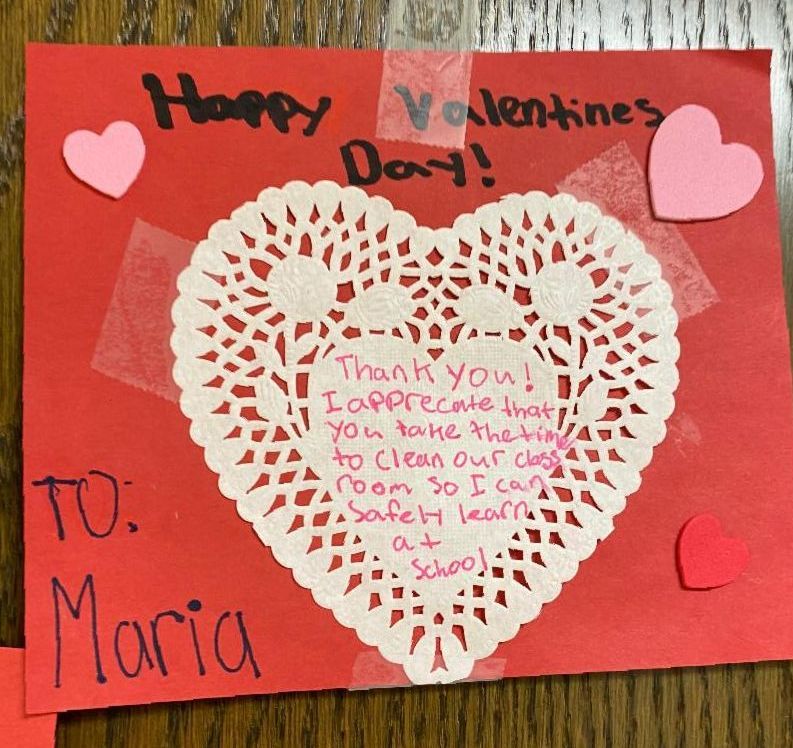 Happy Valentines
Day!
Thank you!
I apprecate that
you take the time
to clean our class
room so I can
safely learn
at
school
TO:
Maria